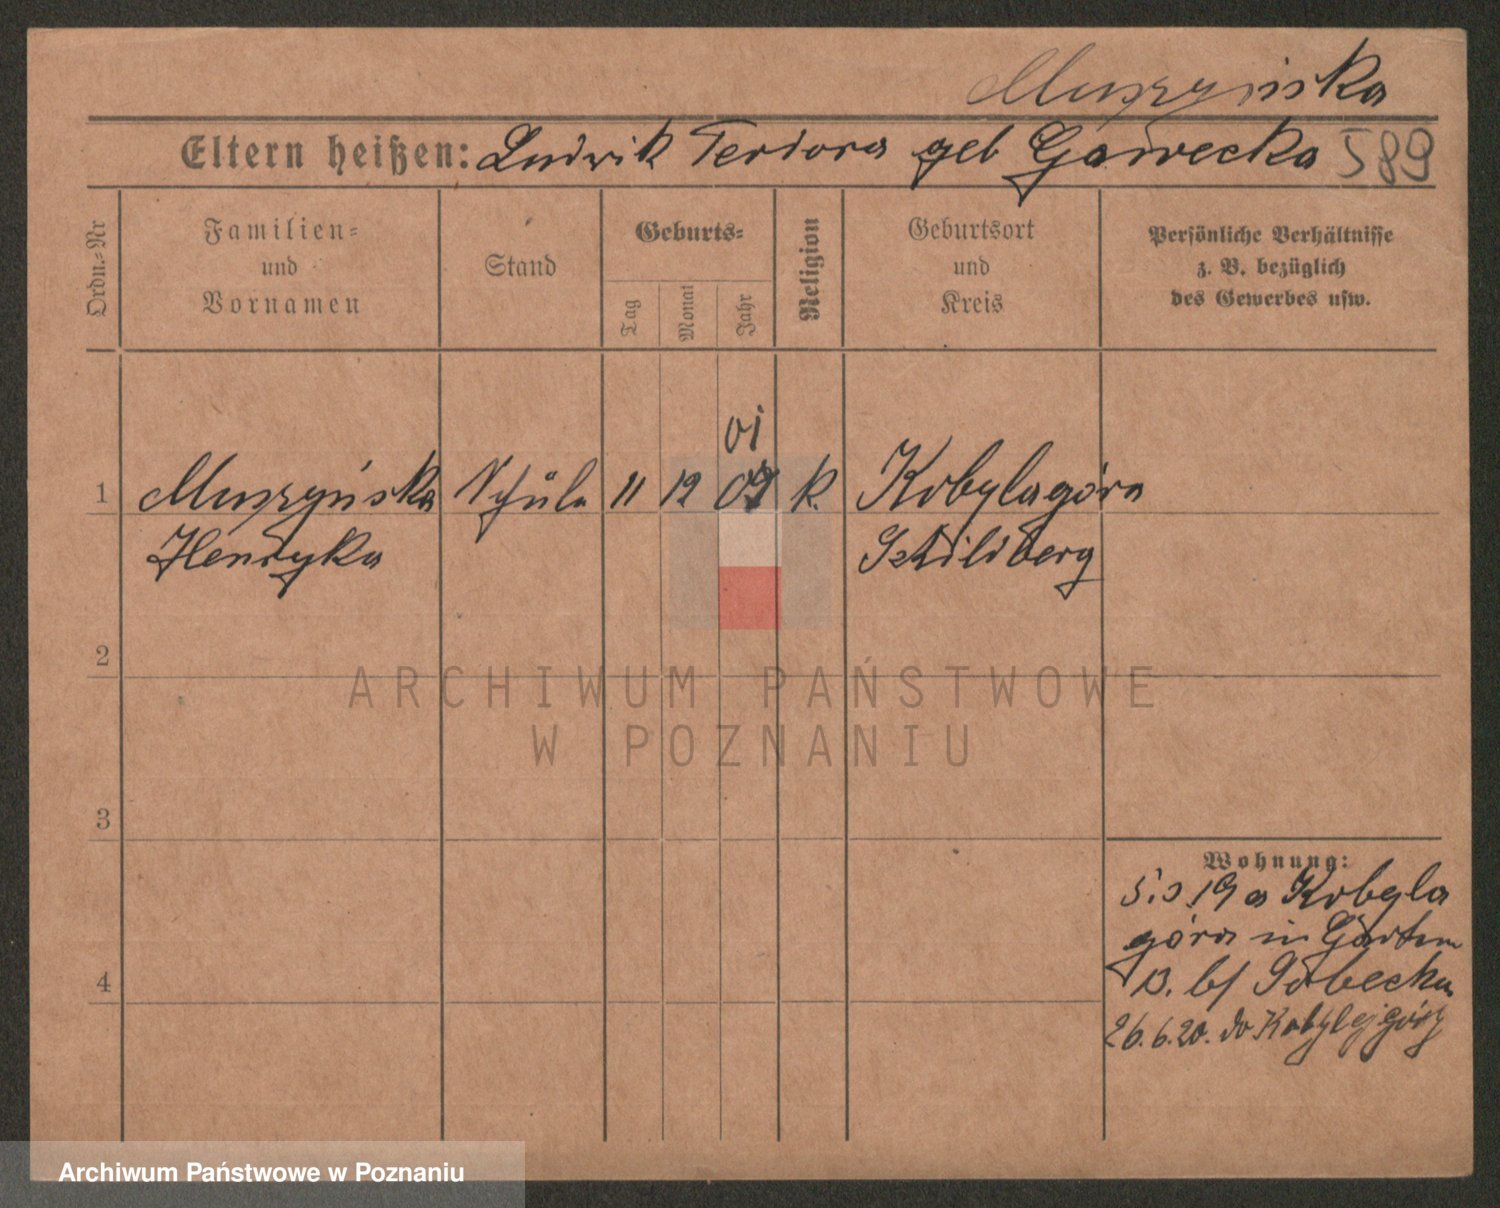 Muszyńska
Eltern heißen: Ludwik Teodora geb Gawecka 589
Ordn.-Nr
Familien- und Vornamen
Stand
Geburts-
Tag
Monat
Jahr
Religion
Geburtsort und Kreis
Persönliche Verhältnisse z. B. bezüglich des Gewerbes usw.
01
1 Muszyńska Schüle 11 12 09 k. Kobylagóra
Henryka Schildberg
2
3
4
Wohnung:
19 a Kobyla
góra in Garten
13. b/
26.6.20. do Kobylejgóry
ARCHIWUM PAŃSTWOWE
W POZNANIU
Archiwum Państwowe w Poznaniu